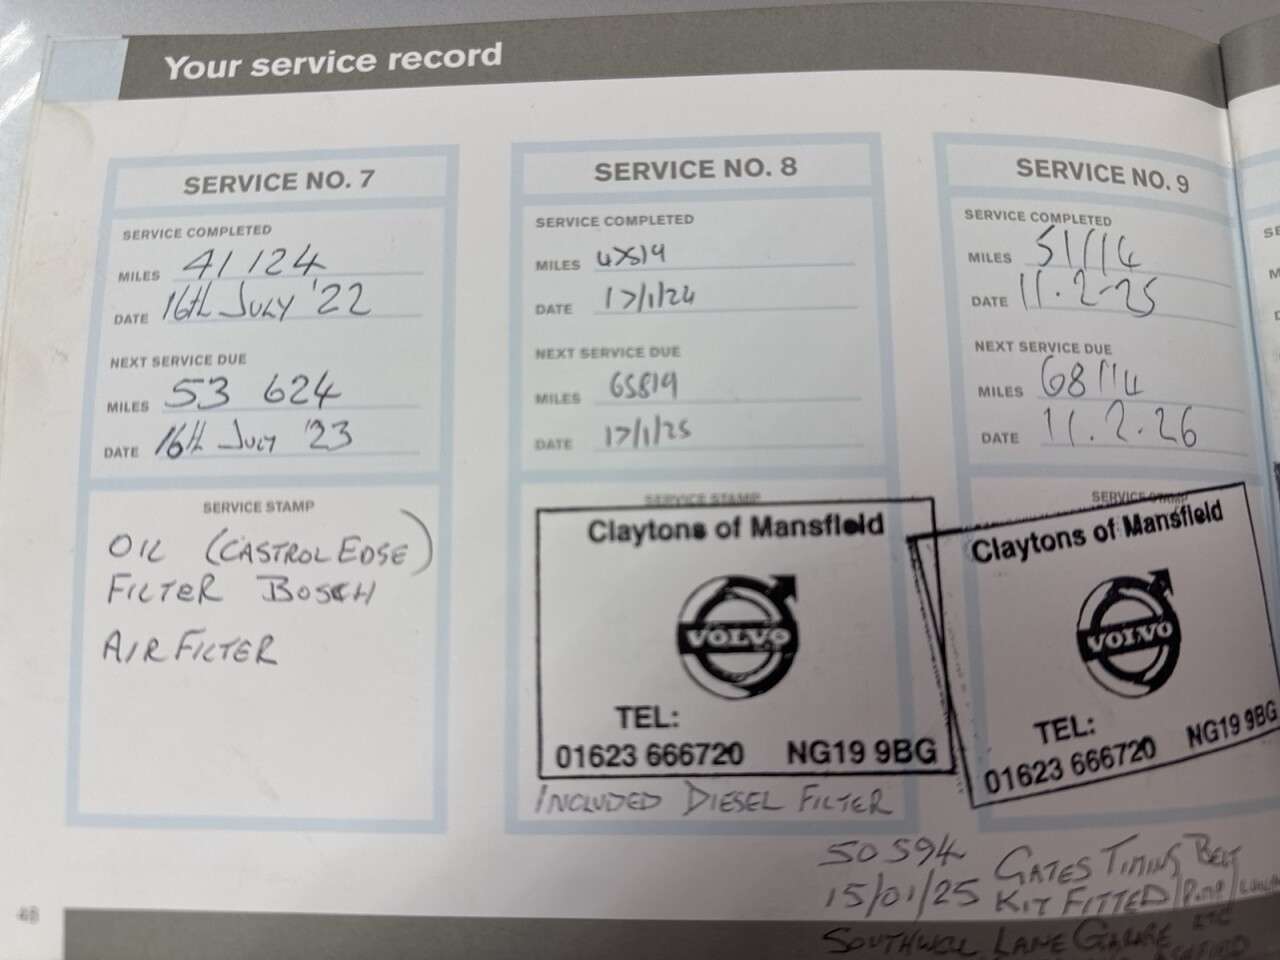 Your service record
SERVICE NO. 7
SERVICE COMPLETED
MILES 41124
DATE 16th JULY '22
NEXT SERVICE DUE
MILES 53 624
DATE 16th JULY '23
SERVICE STAMP
OIL (CASTROL EDGE)
FILTER BOSCH
AIR FILTER
SERVICE NO. 8
SERVICE COMPLETED
MILES
DATE 17/1/24
NEXT SERVICE DUE
MILES 65819
DATE 17/1/25
SERVICE STAMP
Claytons of Mansfield
VOLVO
TEL:
01623 666720 NG19 9BG
INCLUDED DIESEL FILTER
SERVICE NO. 9
SERVICE COMPLETED
MILES 51114
DATE 11.2-25
NEXT SERVICE DUE
MILES 68114
DATE 11.2.26
SERVICE STAMP
Claytons of Mansfield
VOLVO
TEL:
01623 666720 NG19 9BG
50594 GATES TIMING BELT
15/01/25 KIT FITTED
SOUTHWELL LANE GARAGE ETC
48